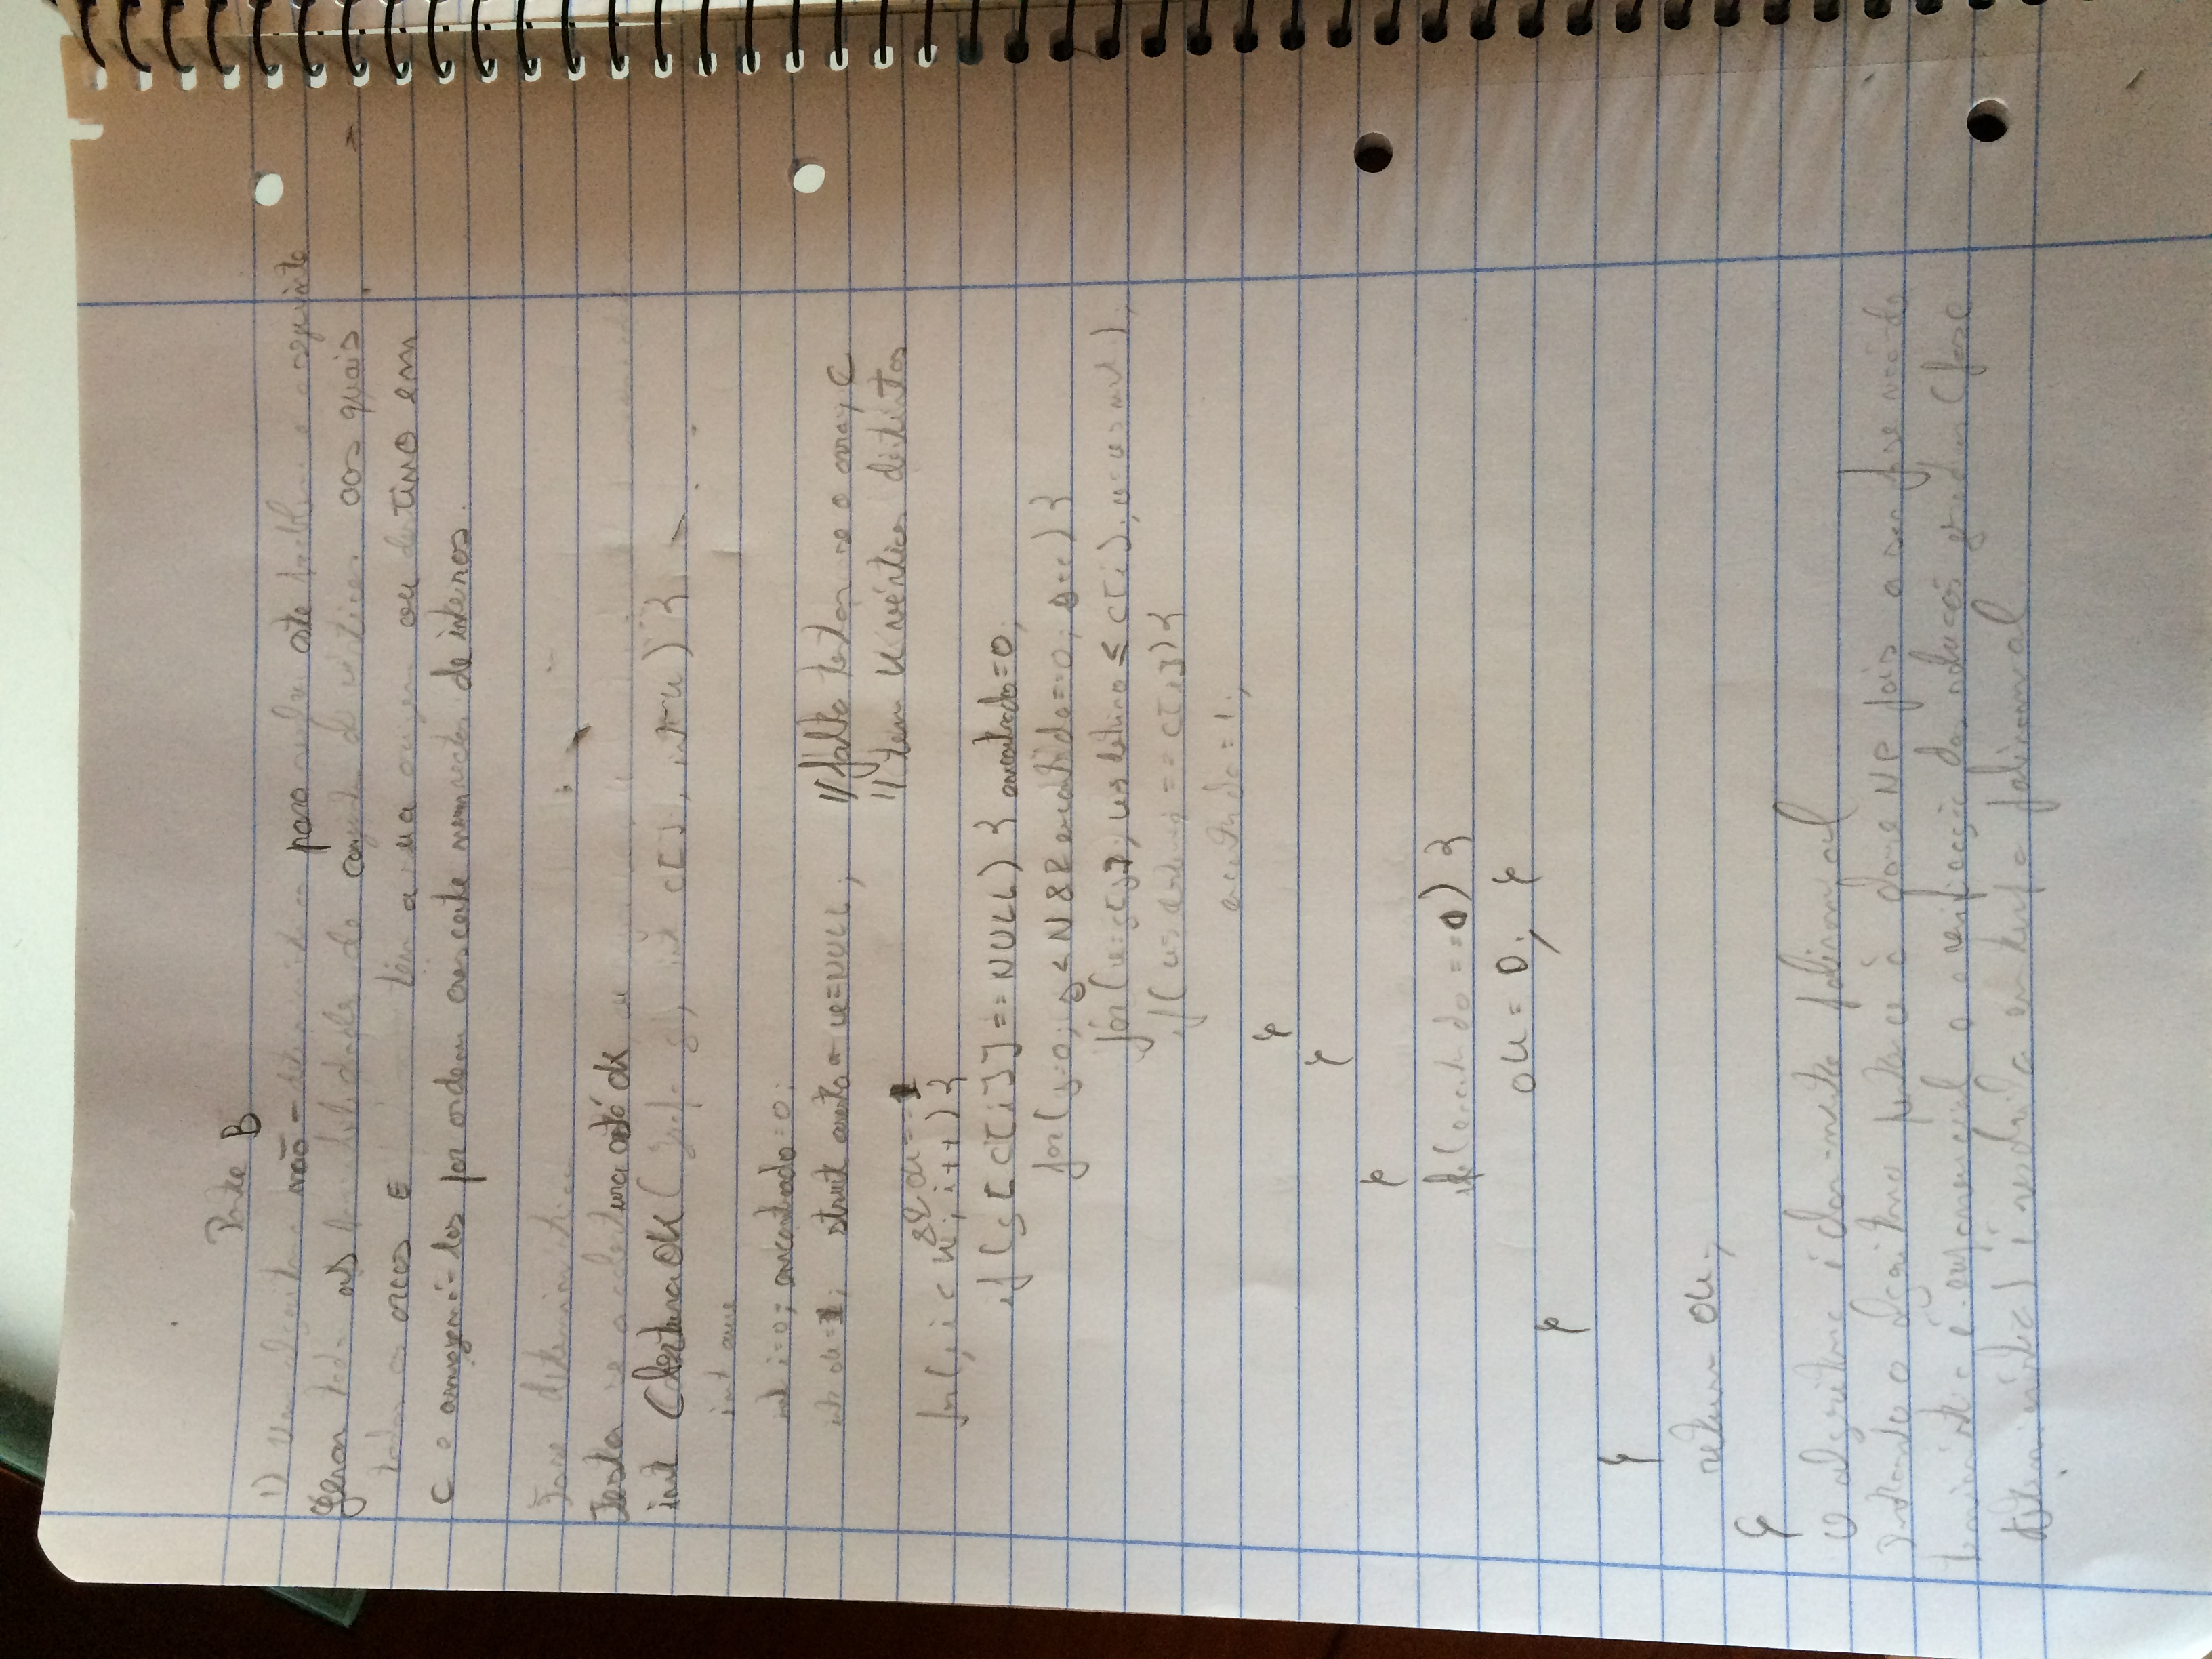 Parte B
1) Um algoritmo não-determinístico para resolver este problema é o seguinte
Gerar todas as possibilidades de conjuntos de vértices aos quais
todos os arcos E têm a sua origem ou destino em
C e armazená-los por ordem crescente num vector de inteiros.
Fase determinística
Testa se a cobertura está ok
int CoberturaOK (Grafo g, int c[], int k) {
int aux
int i=0; encontrado=0;
int ok=1; struct aresta * u=NULL; // falta testar se o array C
// tem K vértices distintos
&& ok==1
for(; i<k; i++) {
if (g[c[i]]==NULL) { encontrado=0;
for(j=0; j<N && encontrado==0; j++) {
for(u=g[j]; u->destino ≤ c[i]; u=u->next);
if(u->destino == c[i]) {
encontrado=1;
}
}
}
if(encontrado==0) {
ok = 0; }
}
}
return ok;
}
O algoritmo é claramente polinomial
Portanto o algoritmo pertence à classe NP pois a sua fase não-de
terminística é exponencial e a verificação das soluções geradas (fase
determinística) é resolvida em tempo polinomial